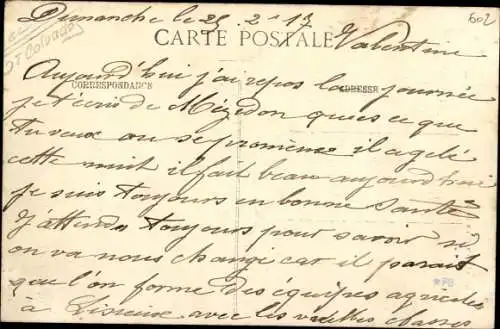 Dimanche le 25 2 - 17
602
CARTE POSTALE
Valentine
Calvados
Aujourd'hui j'ai repos la journée
CORRESPONDANCE
ADRESSE
je t'écris de Mézidon qu'es ce que
tu veux on se promène il a gelé
cette nuit il fait beau aujourd'hui
je suis toujours en bonne santée
J'attends toujours pour savoir si
on va nous changé car il parait
que l'on forme des équipes agricoles
à Lisieux avec les vieilles classes